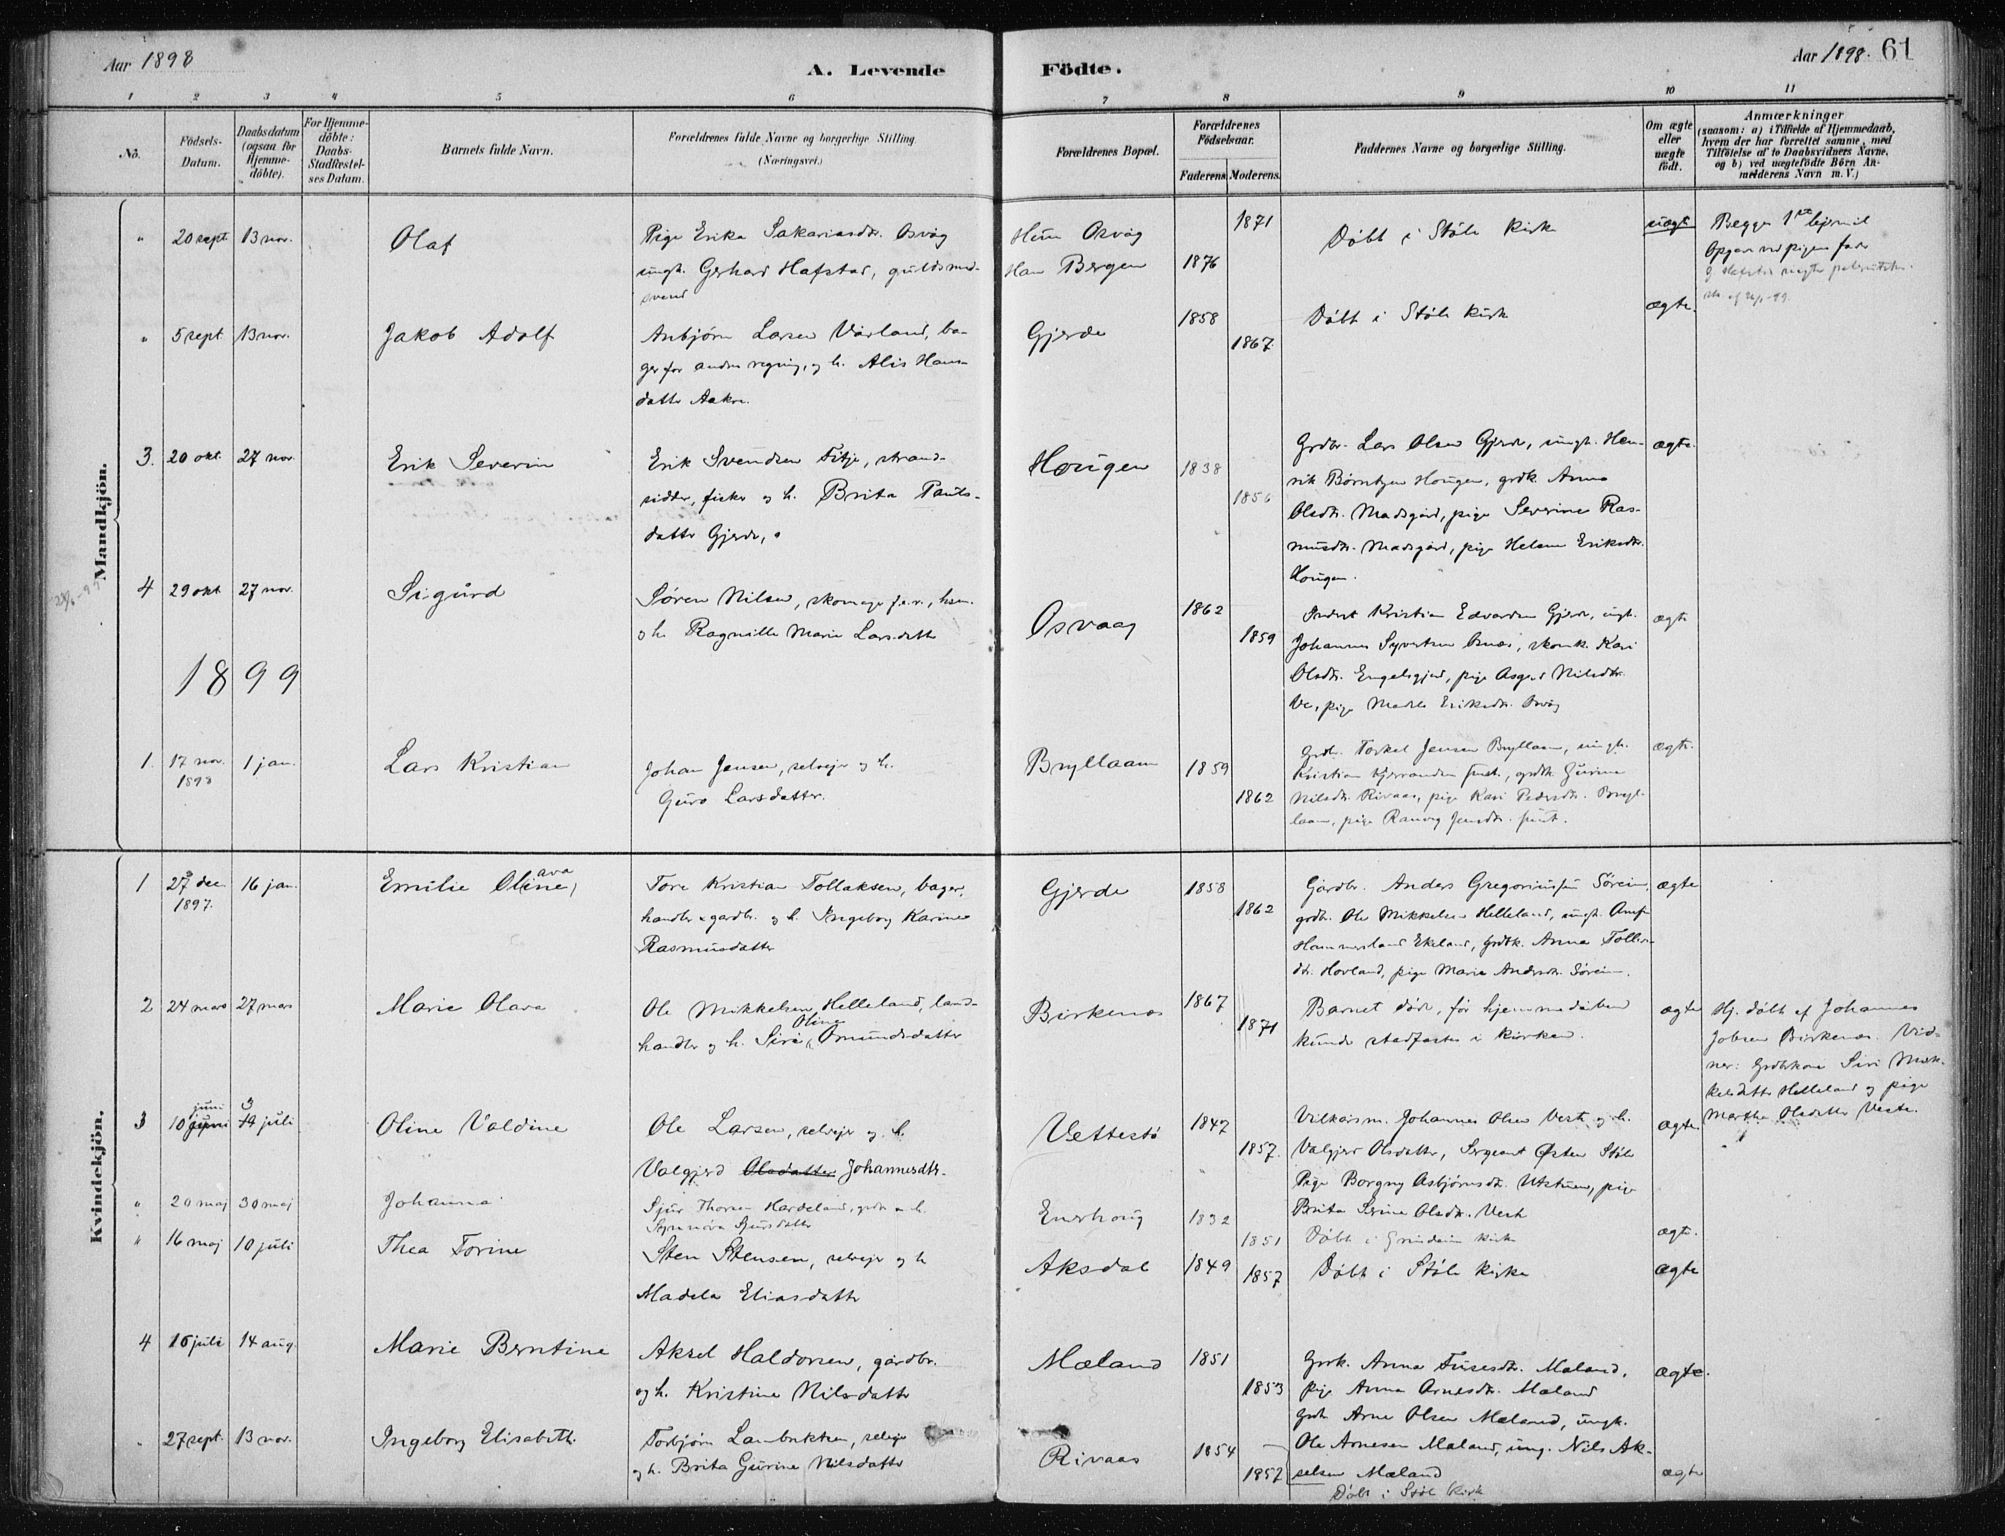 Aar 1898
A. Levende
Födte.
Aar 1898. 61
1 2 3 4 5 6 7 8 9 10 11
No.
Födsels-Datum.
Daabsdatum (ogsaa for Hjemme-döbte).
For Hjemme-döbte: Daabs-Stadfæstel-ses Datum.
Barnets fulde Navn.
Forældrenes fulde Navne og borgerlige Stilling
(Næringsvei.)
Forældrenes Bopæl.
Forældrenes Födselsaar.
Faderens. Moderens.
Faddernes Navne og borgerlige Stilling.
Om ægte eller uægte födt.
Anmærkninger
(saasom: a) i Tilfælde af Hjemmedaab,
hvem der har forrettet samme, med
Tilföielse af to Daabsvidners Navne,
og b) ved uægtefödte Börn An-
melderens Navn m. V.)
Mandkjön.
" 20 sept 13 nov. Olaf
Pige Erika Sakariasdtr. Osvåg
ungk. Gerhard Hafstad, guldsmed-
svend
Hun Osvåg 1871
Han Bergen 1876
Døbt i Støle kirk
uægt.
Begges 1ste leiermål
Opgave ved pigens fader
" 5 sept 13 nov. Jakob Adolf
Anbjørn Larsen Vårland, ba-
ger for andres regning, og h. Alis Hans-
datter Aakre.
Gjerde 1858 1867.
Døbt i Støle kirk
ægte.
3. 20 okt. 27 nov. Erik Severin
Erik Svendsen Fitje, strand-
sidder, fisker og h. Brita Pauls-
datter Gjerde,
Hougen 1838 1856
Grdbr. Lars Olsen Gjerde, ungk. Hen-
rik Børntsen Hougen, grdk. Anna
Olsdtr. Madsgård, pige Severine Ras-
musdtr. Madsgård, pige Helene Eriksdtr.
Hougen.
ægte.
4 29 okt 27 nov. Sigurd
Søren Nilsen, skomager f.e.r., hsm.
og h. Ragnille Marie Larsdatter
Osvaag 1862 1859
Inderst Kristian Edvardsen Gjerde, ungk.
Johannes Syvertsen Osnes, skomk. Kari
Olsdtr. Engelsgjerd, pige Asgerd Nilsdtr.
Ve, pige Madele Eriksdtr. Osvåg
ægte
1899
1. 17 nov. 1 jan. Lars Kristian
1898
Johan Jensen, selveier og h.
Guro Larsdatter.
Bryllaam 1859 1862
Grdbr. Torkel Jensen Bryllaam, ungk.
Kristian Kjerrandsen smst., grdk. Gurine
Nilsdtr. Rivaas, pige Kari Pedersdtr. Bryl-
laam, pige Ranveg Jensdtr. smst.
ægte.
Kvindekjön.
1 27 dec 16 jan. Emilie Oline, ava
1897.
Tore Kristian Tollaksen, bager,
handler & gardbr. og h. Ingeborg Karine
Rasmusdatter
Gjerde 1858 1862
Gårdbr. Anders Gregoriussen Søreim,
grdbr. Ole Mikkelsen Helleland, ungk.
Hammersland Ekeland, grdbk. Anna
Hovland, pige Marie Andersdtr. Søreim.
ægte
2 24 mars 27 mars Marie Olava
Ole Mikkelsen Helleland, land-
handler og h. Siri Oline Omundsdatter
Birkenes 1867 1871
Barnet døde, før hjemmedåben
kunde stadfæstes i kirken.
ægte
Hj. døbt af Johannes
Jobsen Birkenes. Vid-
ner: Grdbrkone Siri Mik-
kelsdatter Helleland og pige
Martha Olsdatter Veste.
3 10 juni juni 3 14 juli Oline Valdine
Ole Larsen, selveier og h.
Valgjerd Olsdatter Johannesdtr.
Vettestø 1847 1857.
Vilkårsm. Johannes Olsen Vest og h.
Valgjerd Olsdatter, Sergeant Østen Støle
Pige Borgny Asbjørnsdtr. Utstuen, pige
Brita Serine Olsdtr. Vest
ægte.
" 20 maj 30 maj Johanna
Sjur Thorsen Hardeland, grdbr og h.
Synnøva Sjursdatter
Enerhoug 1832 1851
Døbt i Grindeim kirk
ægte.
" 16 maj 10 juli Thea Torine
Sten Stensen, selveier og h
Madela Eliasdatter
Aksdal 1849 1857
Døbt i Støle kirke
ægte
4 15 juli 14 aug. Marie Berntine
Aksel Haldorsen, gårdbr.
og h. Kristine Nilsdatter
Mæland 1851 1853
Grdk. Anna Mæland.
pige Anna Arnesdtr. Mæland
Grdb. Arne Olsen Mæland, ungk.
Ole Arnesen Mæland, ung. Nils Ak-
selsen Mæland
ægte.
" 27 sept. 13 nov. Ingeborg Elisabeth.
Torbjørn Lambrektsen, selveier
og h. Brita Gurine Nilsdatter
Rivaas 1854 1857
Døbt i Støle kirk
ægte